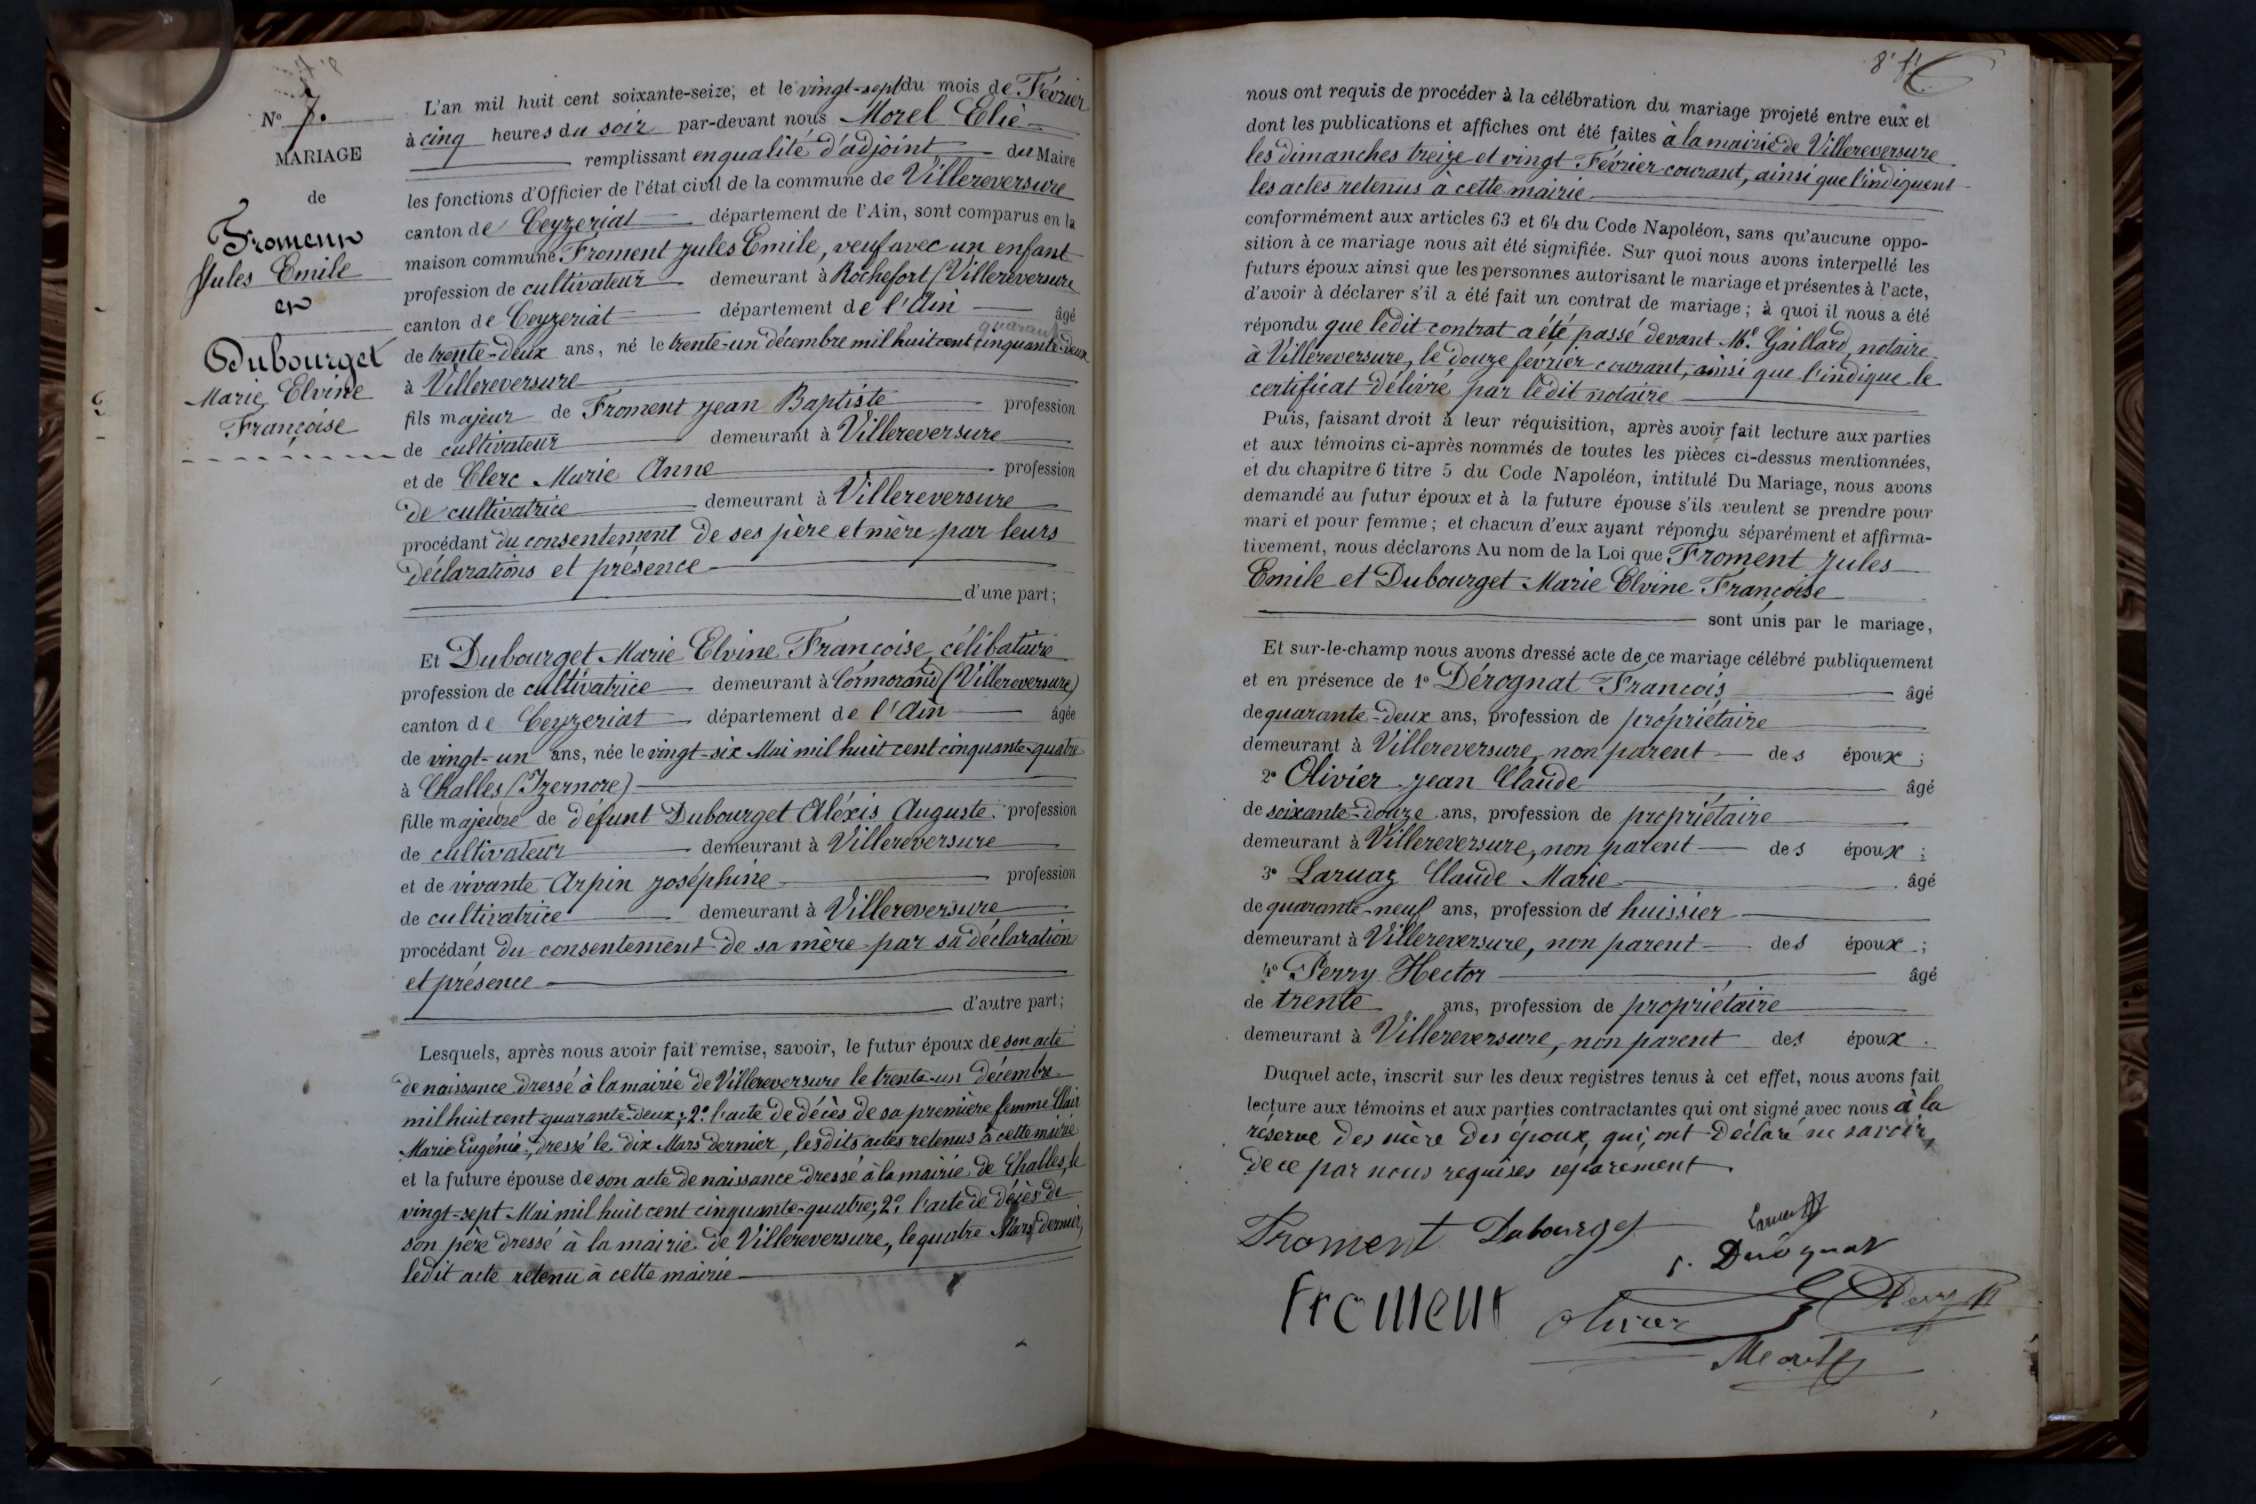 N° 7.
MARIAGE
de
Froment
Jules Emile
et
Dubourget
Marie Elvine
Françoise
L'an mil huit cent soixante-seize, et le vingt-sept du mois de Février
à cinq heures du soir par-devant nous Morel Elie
remplissant en qualité d'adjoint du Maire
les fonctions d'Officier de l'état civil de la commune de Villereversure
canton de Ceyzeriat département de l'Ain, sont comparus en la
maison commune Froment Jules Emile, veuf avec un enfant
profession de cultivateur demeurant à Rochefort (Villereversure
canton de Ceyzeriat département de l'Ain âgé
quarante
de trente-deux ans, né le trente-un décembre mil huit cent cinquante-deux
à Villereversure
fils majeur de Froment Jean Baptiste profession
de cultivateur demeurant à Villereversure
et de Clerc Marie Anne profession
de cultivatrice demeurant à Villereversure
procédant du consentement de ses père et mère par leurs
déclarations et présence
d'une part;
Et Dubourget Marie Elvine Françoise, célibataire
profession de cultivatrice demeurant à Cormorand (Villereversure)
canton de Ceyzeriat département de l'Ain âgée
de vingt-un ans, née le vingt-six Mai mil huit cent cinquante-quatre
à Challes (Izernore)
fille majeure de défunt Dubourget Aléxis Auguste profession
de cultivateur demeurant à Villereversure
et de vivante Arpin Joséphine profession
de cultivatrice demeurant à Villereversure
procédant du consentement de sa mère par sa déclaration
et présence
d'autre part;
Lesquels, après nous avoir fait remise, savoir, le futur époux de son acte
de naissance dressé à la mairie de Villereversure le trente-un décembre
mil huit cent quarante-deux; 2° l'acte de décès de sa première femme Clair
Marie Eugénie, dressé le dix Mars dernier, lesdits actes retenus à cette mairie
et la future épouse de son acte de naissance dressé à la mairie de Challes, le
vingt-sept Mai mil huit cent cinquante-quatre; 2° l'acte de décès de
son père dressé à la mairie de Villereversure, le quatre Mars dernier,
ledit acte retenu à cette mairie
nous ont requis de procéder à la célébration du mariage projeté entre eux et
dont les publications et affiches ont été faites à la mairie de Villereversure
les dimanches treize et vingt Février courant, ainsi que l'indiquent
les actes retenus à cette mairie
conformément aux articles 63 et 64 du Code Napoléon, sans qu'aucune oppo-
sition à ce mariage nous ait été signifiée. Sur quoi nous avons interpellé les
futurs époux ainsi que les personnes autorisant le mariage et présentes à l'acte,
d'avoir à déclarer s'il a été fait un contrat de mariage; à quoi il nous a été
répondu que ledit contrat a été passé devant Me Gaillard, notaire
à Villereversure, le douze février courant, ainsi que l'indique le
certificat délivré par ledit notaire
Puis, faisant droit à leur réquisition, après avoir fait lecture aux parties
et aux témoins ci-après nommés de toutes les pièces ci-dessus mentionnées,
et du chapitre 6 titre 5 du Code Napoléon, intitulé Du Mariage, nous avons
demandé au futur époux et à la future épouse s'ils veulent se prendre pour
mari et pour femme; et chacun d'eux ayant répondu séparément et affirma-
tivement, nous déclarons Au nom de la Loi que Froment Jules
Emile et Dubourget Marie Elvine Françoise
sont unis par le mariage,
Et sur-le-champ nous avons dressé acte de ce mariage célébré publiquement
et en présence de 1° Dérognat François âgé
de quarante-deux ans, profession de propriétaire
demeurant à Villereversure, non parent des époux;
2° Olivier Jean Claude âgé
de soixante-douze ans, profession de propriétaire
demeurant à Villereversure, non parent des époux;
3° Laruaz Claude Marie âgé
de quarante-neuf ans, profession de huissier
demeurant à Villereversure, non parent des époux;
4° Perry Hector âgé
de trente ans, profession de propriétaire
demeurant à Villereversure, non parent des époux.
Duquel acte, inscrit sur les deux registres tenus à cet effet, nous avons fait
lecture aux témoins et aux parties contractantes qui ont signé avec nous à la
réserve des mère des époux, qui ont déclaré ne savoir,
de ce par nous requises séparément.
Froment Dubourget
Derognat
Froment Olivier Perry